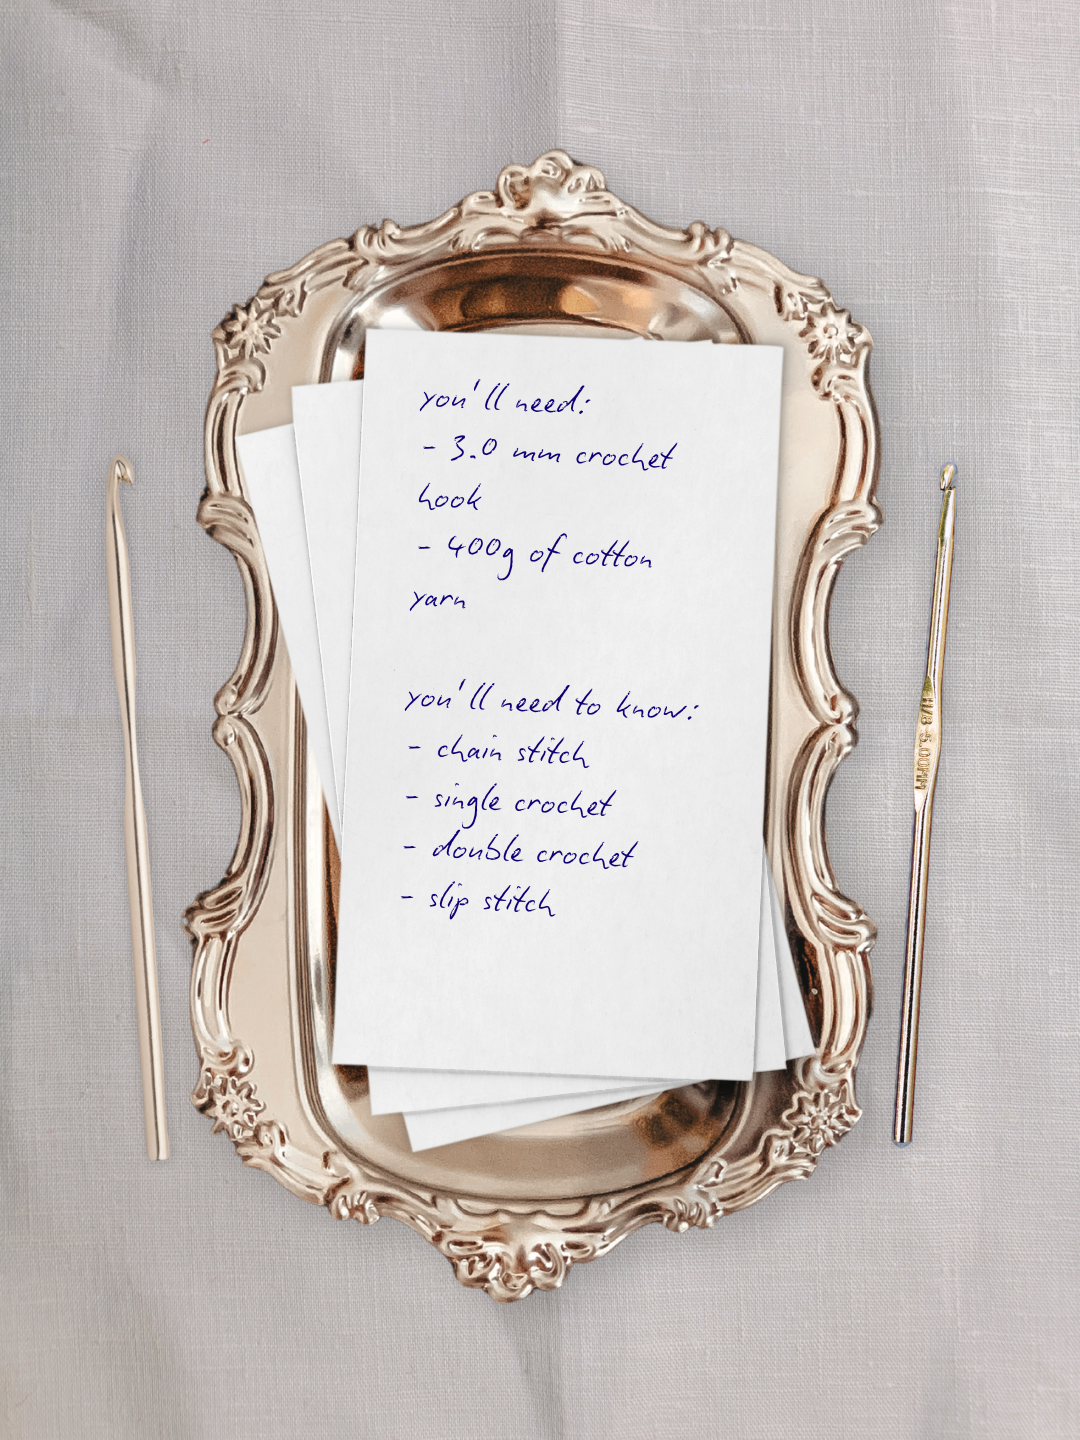 you'll need:
- 3.0 mm crochet
hook
- 400g of cotton
yarn
you'll need to know:
- chain stitch
- single crochet
- double crochet
- slip stitch
H/8-5.00MM